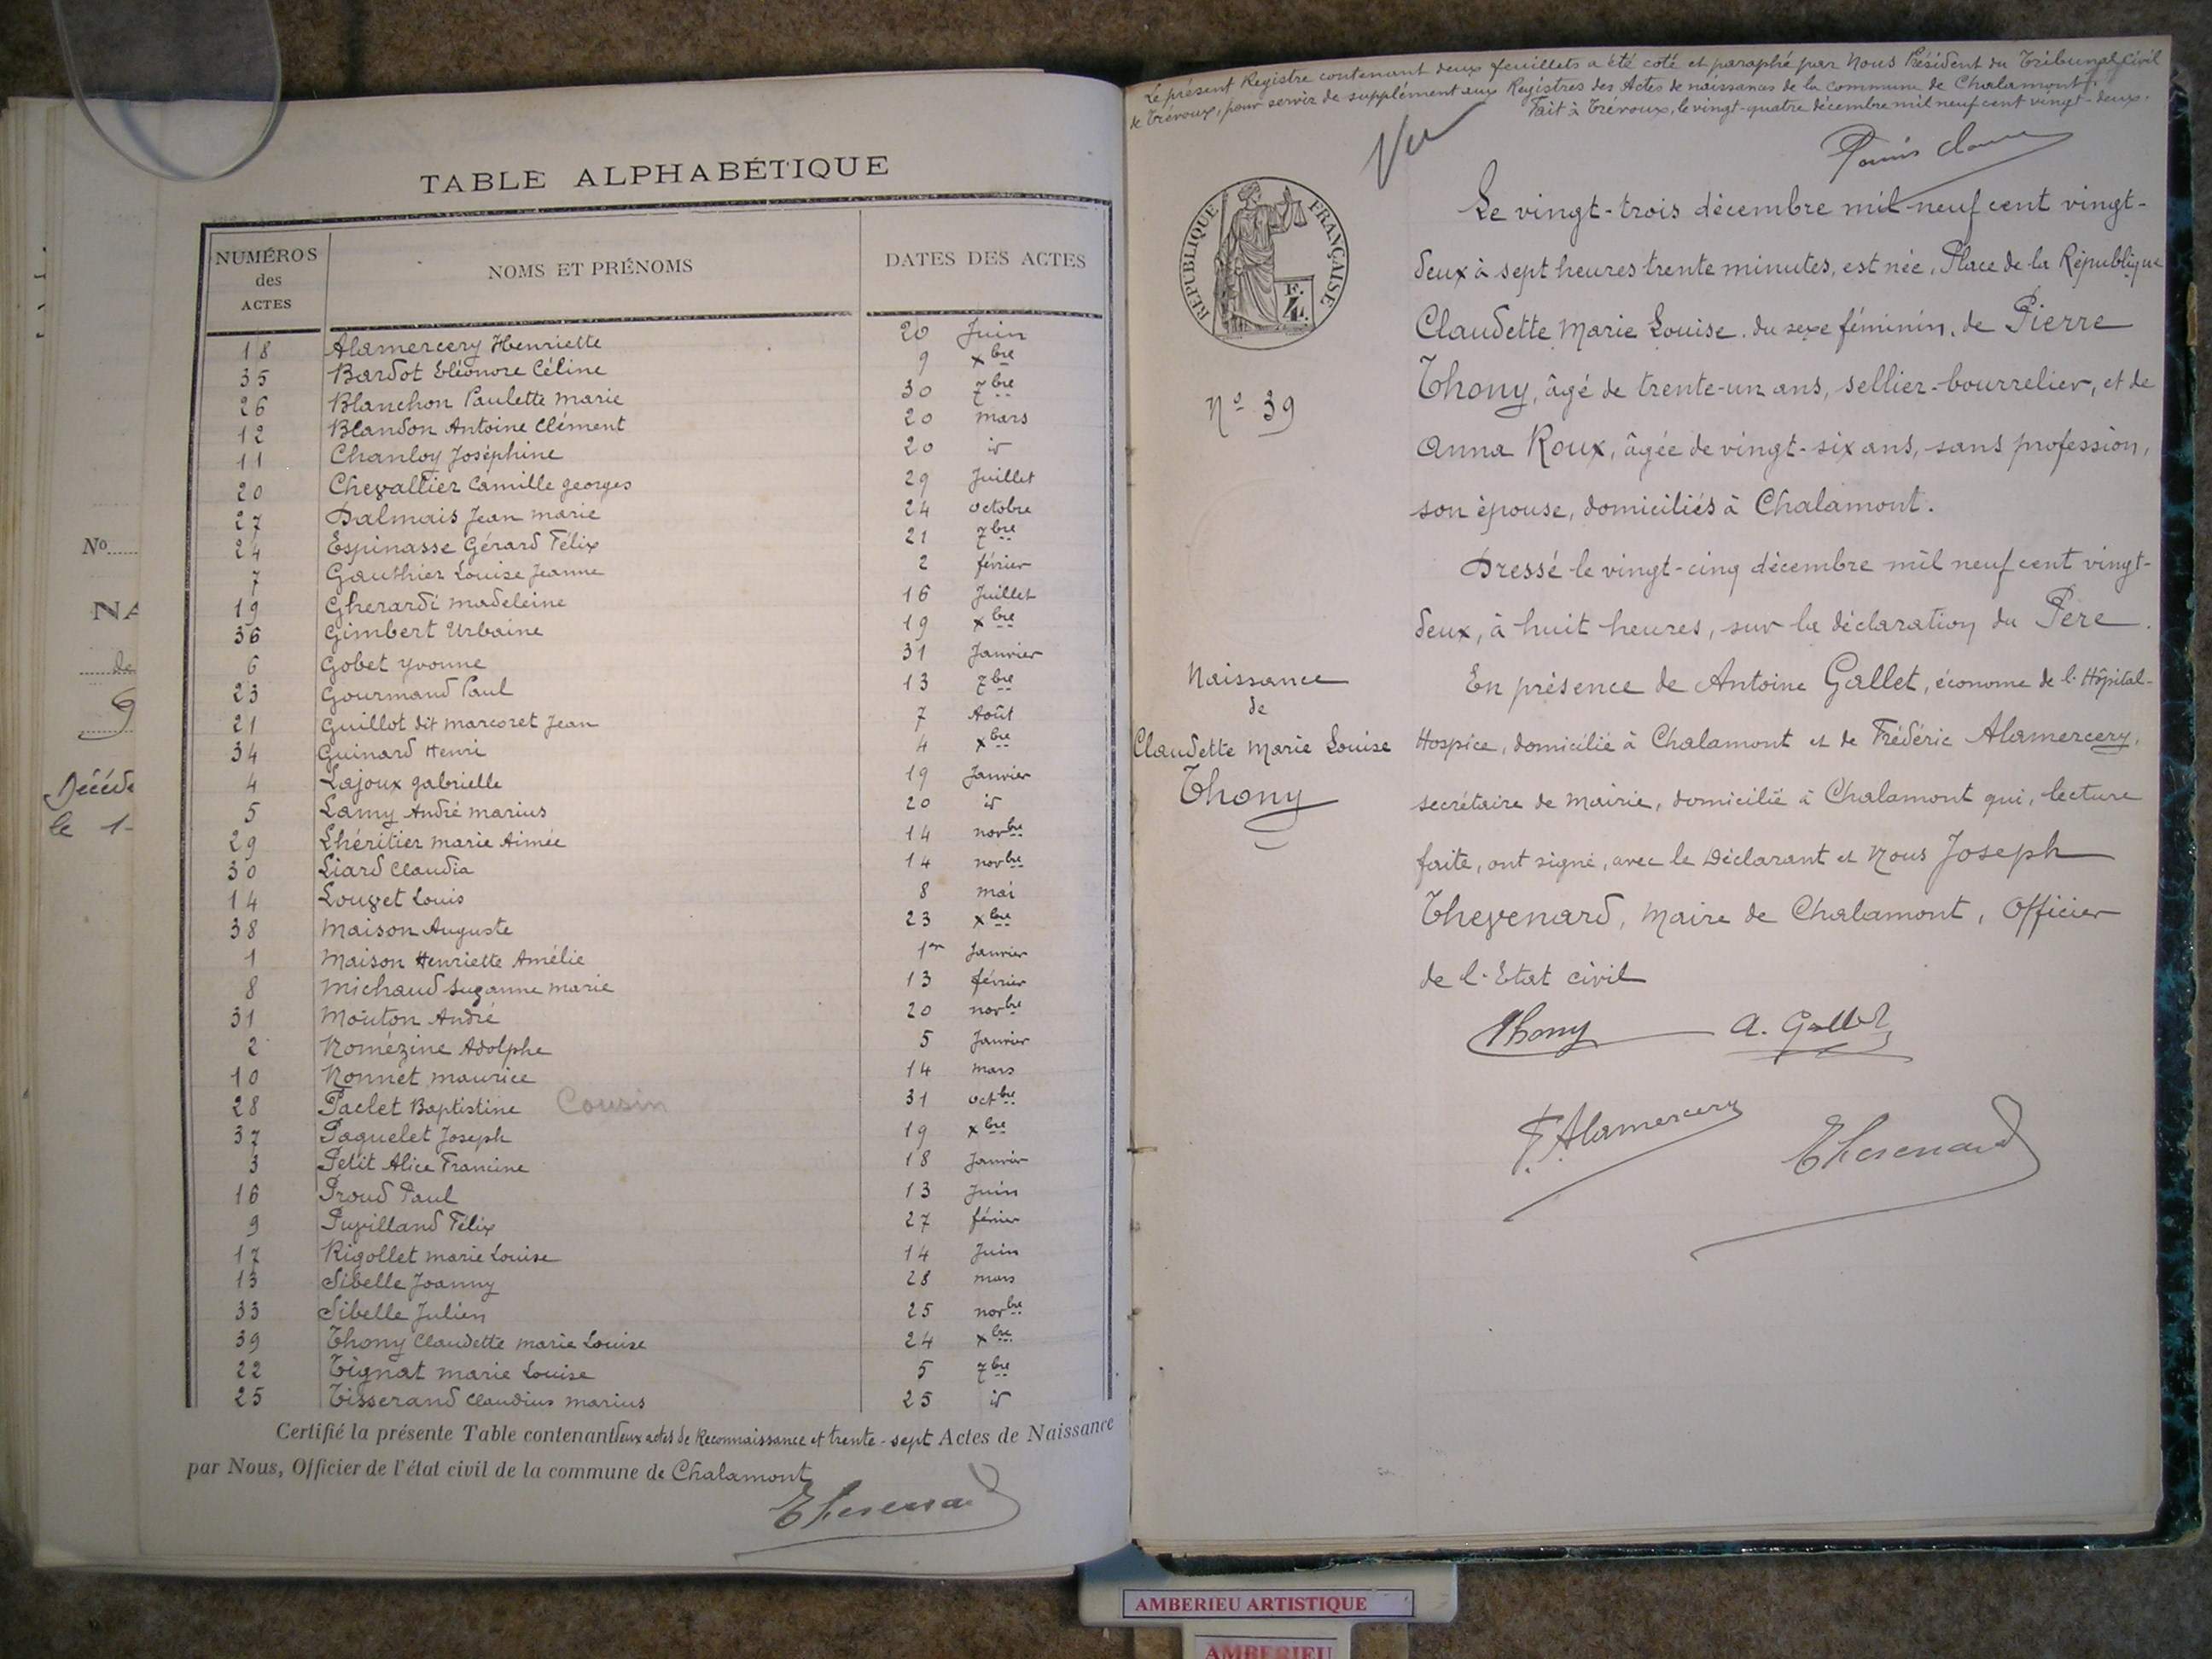 No
NA
de
Décéd
le 1-
TABLE ALPHABÉTIQUE
NUMÉROS des ACTES NOMS ET PRÉNOMS DATES DES ACTES
18 Alamercery Henriette 20 Juin
35 Bardot Eléonore Céline 9 xbre
26 Blanchon Paulette Marie 30 7bre
12 Blandon Antoine Clément 20 mars
11 Chanloy Joséphine 20 id
20 Chevallier Camille Georges 29 Juillet
27 Dalmais Jean Marie 24 octobre
24 Espinasse Gérard Félix 21 7bre
7 Gauthier Louise Jeanne 2 février
19 Gherardi Madeleine 16 Juillet
36 Gimbert Urbaine 19 xbre
6 Gobet Yvonne 31 Janvier
23 Gourmand Paul 13 7bre
21 Guillot dit Marcoret Jean 7 Août
34 Guinard Henri 4 xbre
4 Lajoux Gabrielle 19 Janvier
5 Lamy André Marius 20 id
29 Lhéritier Marie Aimée 14 novbre
30 Liard Claudia 14 novbre
14 Louvet Louis 8 mai
38 Maison Auguste 23 xbre
1 Maison Henriette Amélie 1er Janvier
8 Michaud Suzanne Marie 13 février
31 Mouton André 20 novbre
2 Nomézine Adolphe 5 Janvier
10 Nonnet Maurice 14 mars
28 Paclet Baptistine Cousin 31 octbre
37 Paquelet Joseph 19 xbre
3 Petit Alice Francine 18 Janvier
16 Proud Paul 13 Juin
9 Puvilland Félix 27 février
17 Rigollet Marie Louise 14 Juin
13 Sibelle Joanny 28 mars
33 Sibelle Julien 25 novbre
39 Thony Claudette Marie Louise 24 xbre
22 Tignat Marie Louise 5 7bre
25 Tisserand Claudius Marius 25 id
Certifié la présente Table contenant deux actes de Reconnaissance et trente-sept Actes de Naissance
par Nous, Officier de l'état civil de la commune de Chalamont
Thevenard
Le présent Registre contenant deux feuillets a été coté et paraphé par Nous Président du Tribunal Civil
de Trévoux, pour servir de supplément aux Registres des Actes de naissances de la commune de Chalamont.
Fait à Trévoux, le vingt-quatre décembre mil neuf cent vingt-deux.
Vu
RÉPUBLIQUE FRANÇAISE
No 39
Naissance
de
Claudette Marie Louise
Thony
Le vingt-trois décembre mil neuf cent vingt-
deux à sept heures trente minutes, est née, Place de la République
Claudette Marie Louise. du sexe féminin, de Pierre
Thony, âgé de trente-un ans, sellier-bourrelier, et de
Anna Roux, âgée de vingt-six ans, sans profession,
son épouse, domiciliés à Chalamont.
Dressé le vingt-cinq décembre mil neuf cent vingt-
deux, à huit heures, sur la déclaration du Père.
En présence de Antoine Gallet, économe de l'Hôpital-
Hospice, domicilié à Chalamont et de Frédéric Alamercery,
secrétaire de Mairie, domicilié à Chalamont qui, lecture
faite, ont signé, avec le Déclarant et Nous Joseph
Thevenard, Maire de Chalamont, Officier
de l'Etat civil
Thony A. Gallet
F. Alamercery Thevenard
AMBERIEU ARTISTIQUE
AMBERIEU